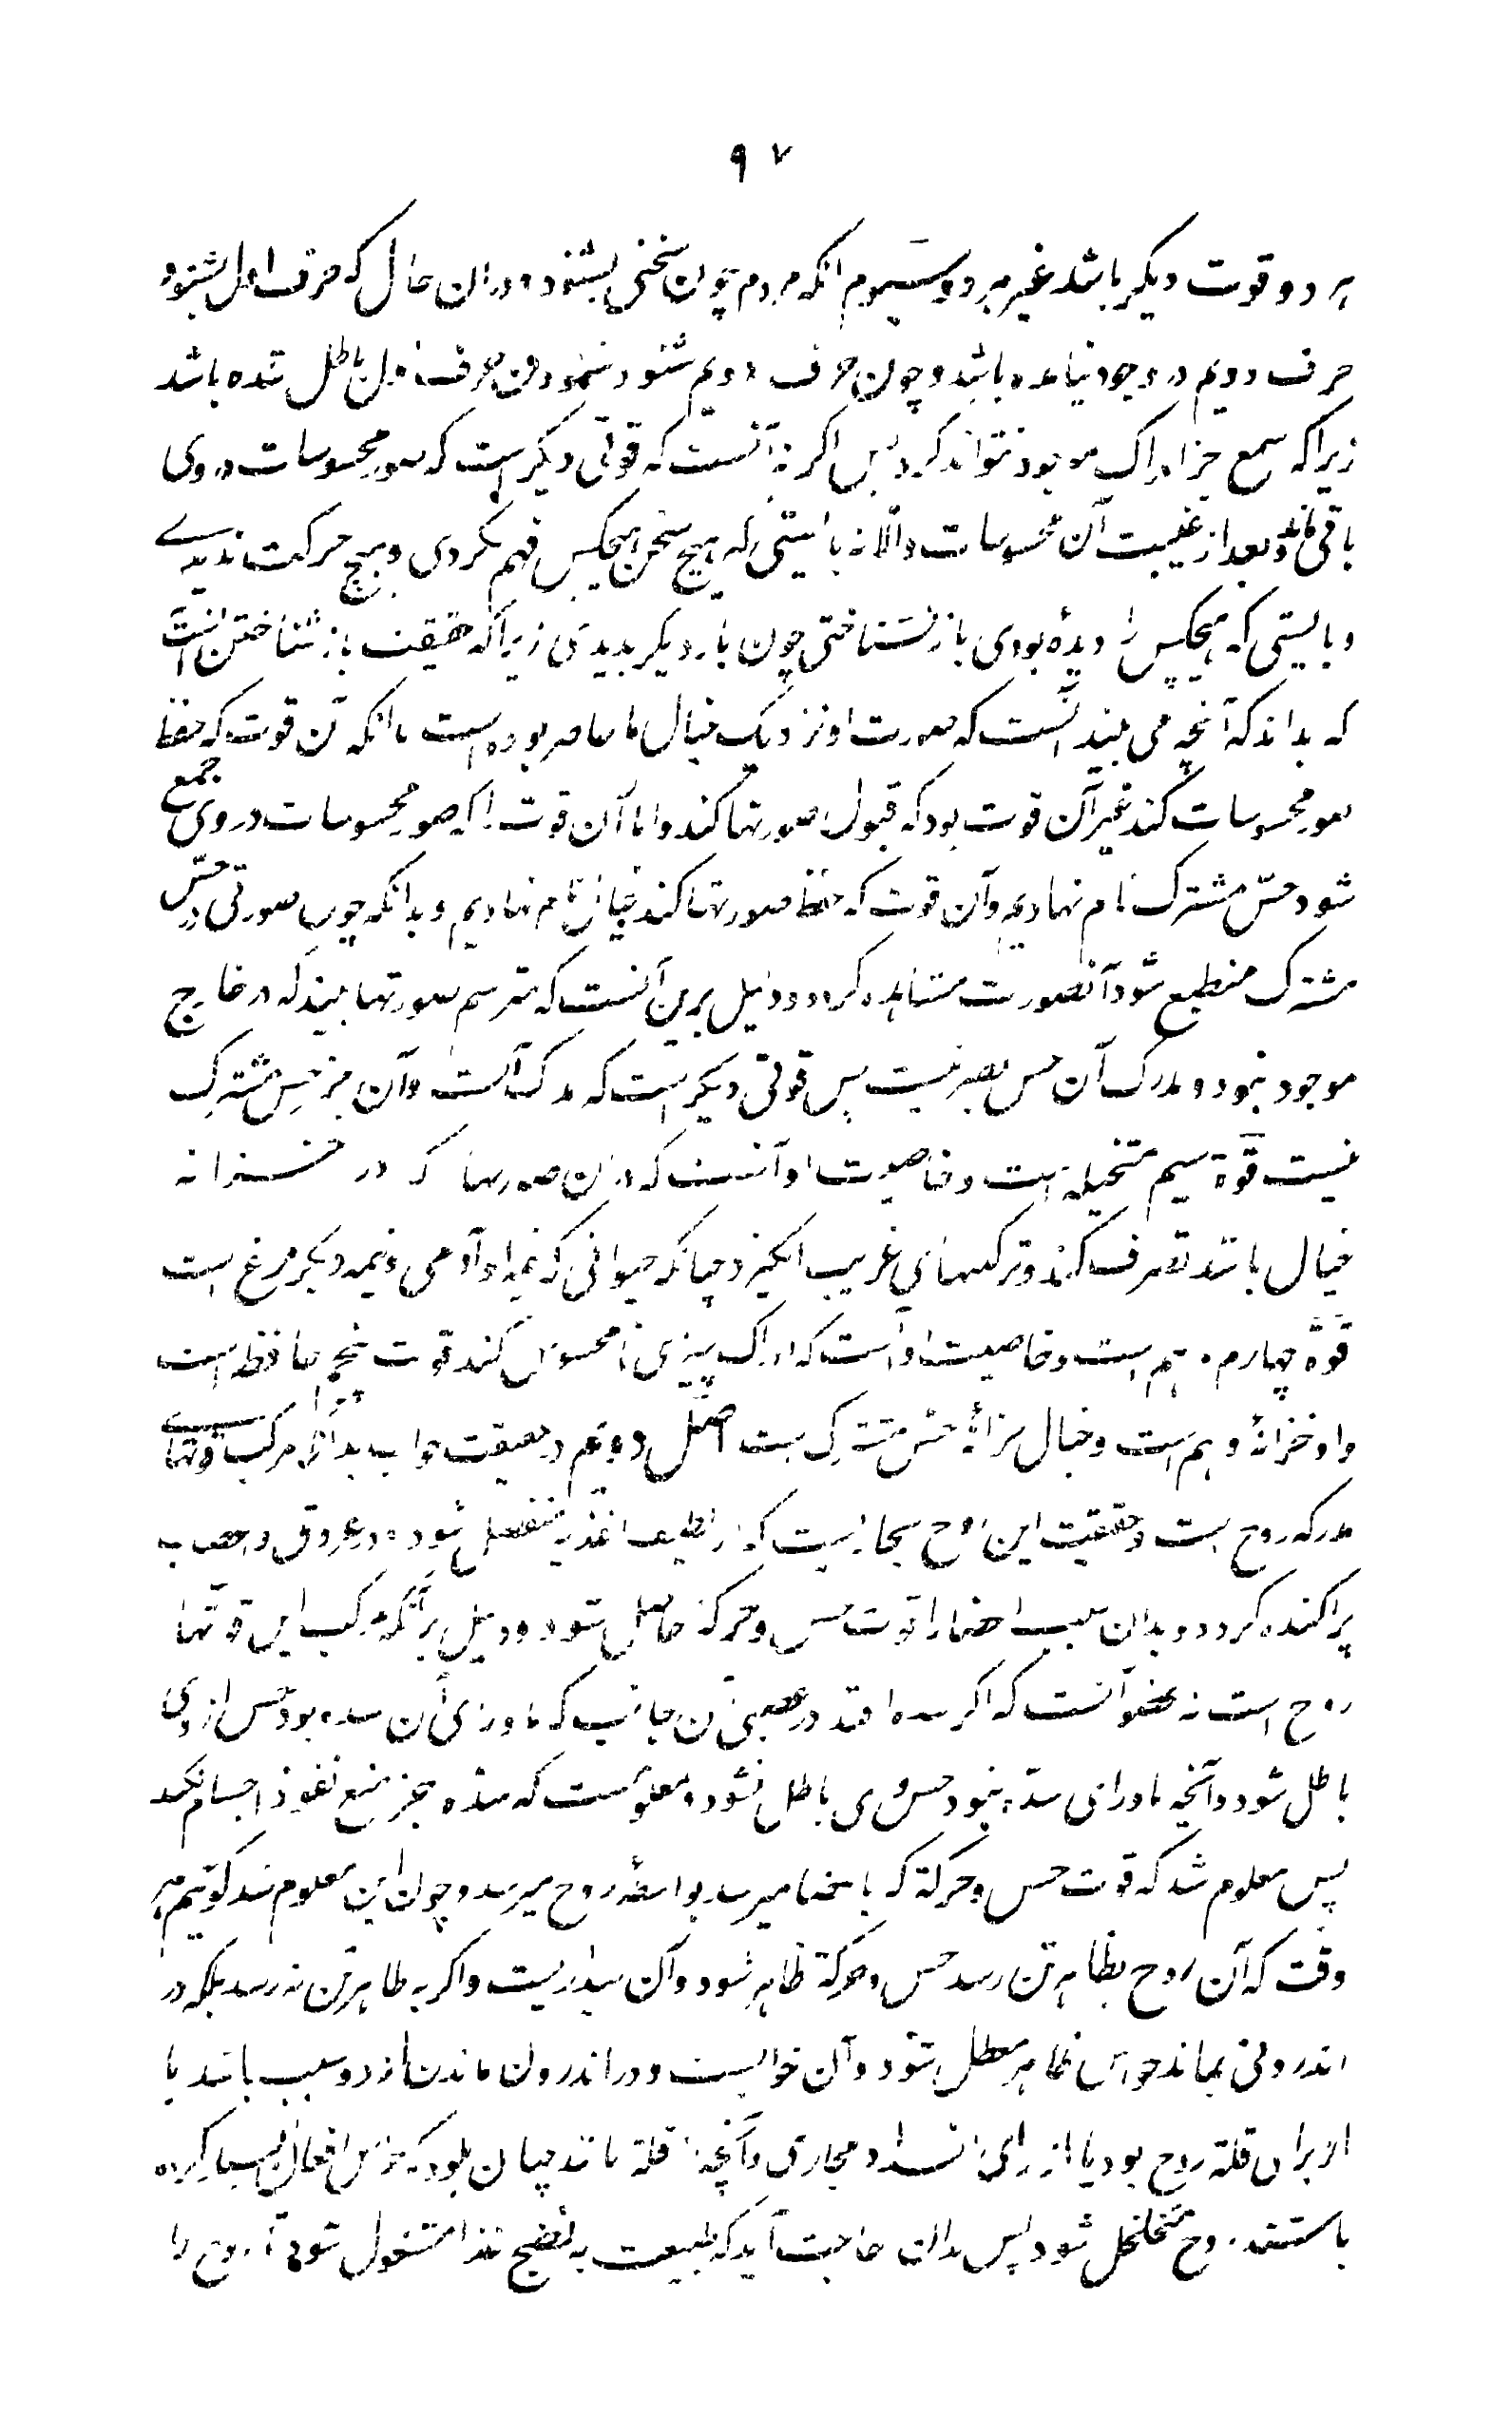 ۹۷
هر دو قوت دیگر باشد غیر هر دو سیوم انکه مردم چون سخنی بشنود و دران حال که حرف اول بشنود
حرف دویم در وجود نیامده باشد و چون حرف دویم شنود حرف اول باطل شده باشد
زیرا که سمع جز ادراک موجود نتواند کرد پس اگر نه آنست که قوتی دیگر است که صور محسوسات در وی
باقی ماند بعد از غیبت آن محسوسات والا نه بایستی که هیچ سخن هیچکس فهم نکردی و هیچ حرکت ندیدے
و بایستی که هیچکس را دیده بودی باز نشناختی چون بار دیگر بدیدی زیرا که حقیقت باز شناختن انست
که بداند که آنچه می بیند آنست که صورت او نزدیک خیال ما حاصر بوده است ما انکه آن قوت که حفظ
صور محسوسات کند غیر آن قوت بود که قبول صورتها کند و اما آن قوت را که صور محسوسات در وی جمع
شود حسّ مشترک نام نهادیم و آن قوت که حفظ صورتها کند خیالش نام نهادیم و بدانکه چون صورتی در حسّ
مشترک منطبع شود آنصورت مشاهده کردد و دلیل برین آنست که مبرسم صورتها بیند که در خارج
موجود نبود و مدرک آن حس بصر نیست پس قوتی دیگر است که مدرک آنست و آن جز حس مشترک
نیست قوّة سیم متخیله است و خاصیت او آنست که در ان صورتها که در خزانه
خیال باشد تصرف کند و ترکیبهای غریب انگیزد چنانکه حیوانی که نیمه او آدمی و نیمه دیگر مرغ است
قوّة چهارم وهم است و خاصیت او آنست که ادراک چیزی نا محسوس کند قوت پنجم حافظه است
و او خزانهٔ وهم است و خیال خزانهٔ حسّ مشترک است اصل دویم در حقیقت خواب بدانکه مرکب قوتهاے
مدرکه روح است و حقیقت این روح بخاریست که از لطیف اغذیه منفصل شود و در عروق و اعصاب
پراکنده کردد و بدان سبب اعضا را قوت حس و حرکة حاصل شود و دلیل بر آنکه مرکب این قوتها
روح است نه عضو آنست که اگر سده افتد در عصبی آن جانب که ماورای آن سده بود حس از وی
باطل شود و آنچه ماورای سدّه نبود حس وی باطل نشود و معلومست که سده بجز منع نفوذ اجسام نکند
پس معلوم شد که قوت حس و حرکة که باعضا میرسد بواسطهٔ روح میرسد و چون این معلوم شد کوئیم هر
وقت که آن روح بظاهر تن رسد حس و حرکة ظاهر شود و آن بیداریست و اگر به ظاهر تن نه رسد بلکه در
اندرونی بماند حواس ظاهر معطل شود و آن خوابست و در اندرون ماندن از دو سبب باشد یا
از برای قلة روح بود یا از برای انسداد مجاری و آنچه از قلة باشد چنان بود که حواس افعال بسیار کرده
باشند روح متخلخل شود پس بدان حاجت آید که طبیعت به نضج غذا مشغول شود تا روح را